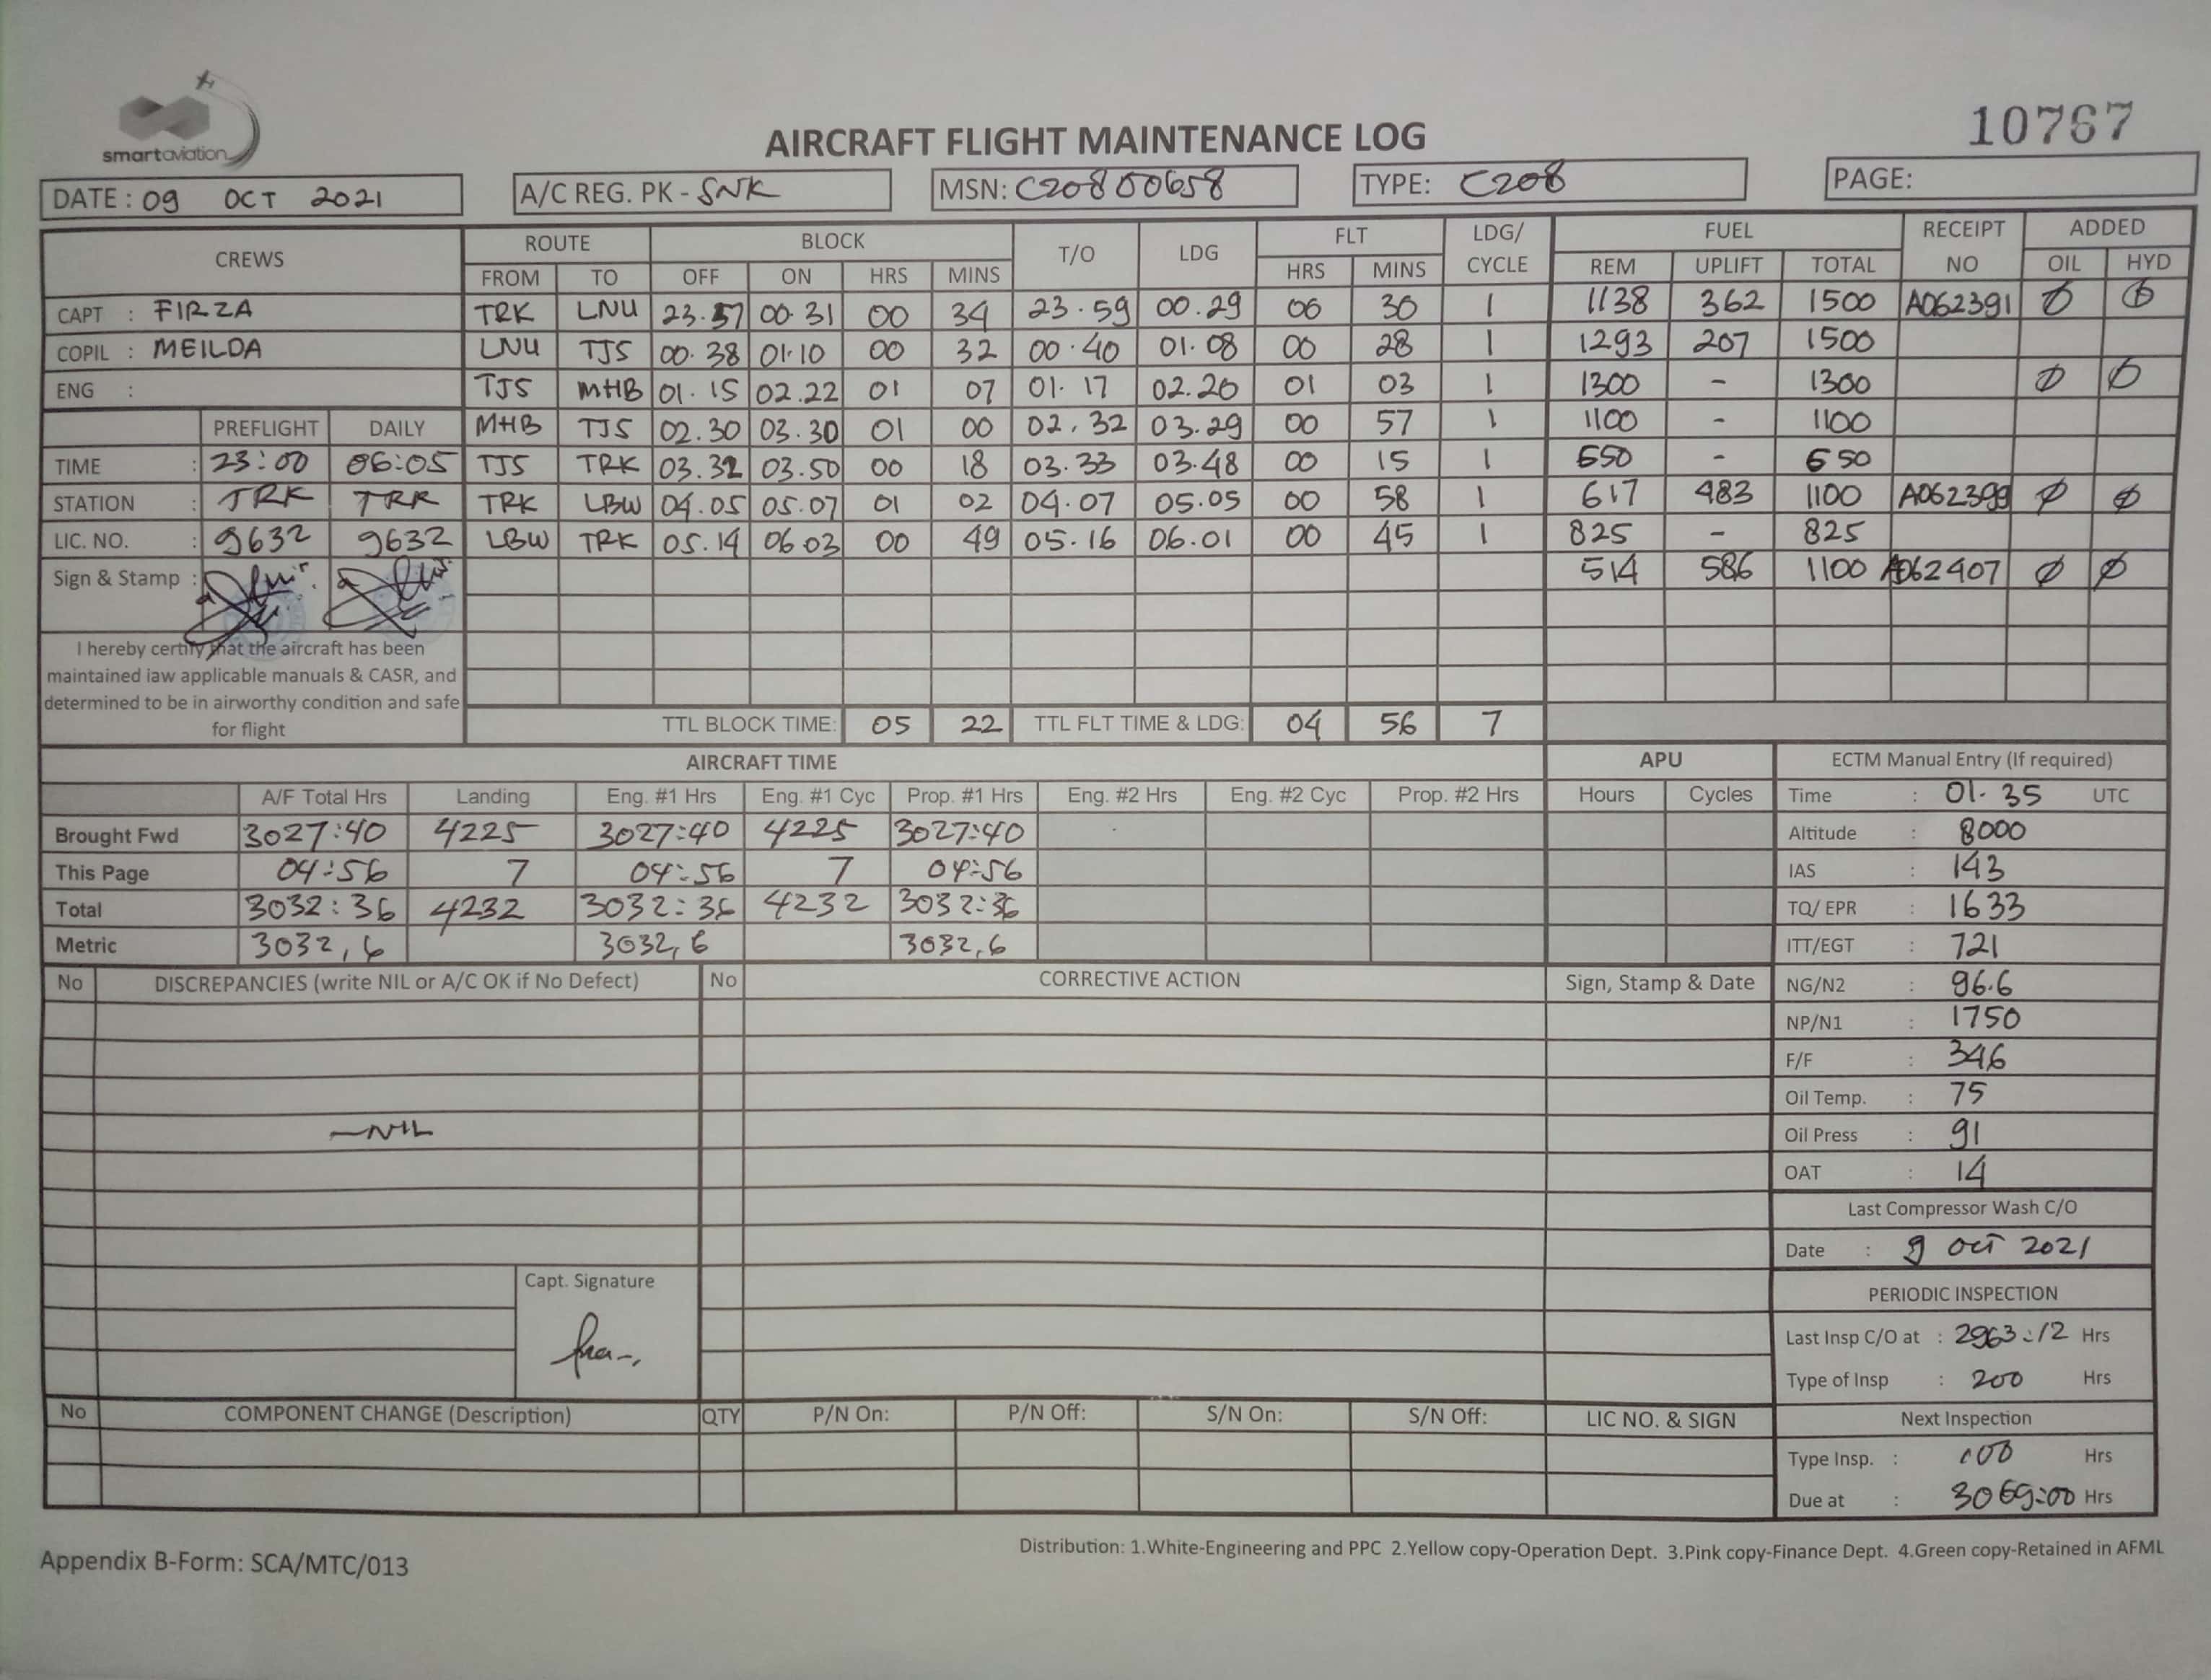 smartaviation
10767
AIRCRAFT FLIGHT MAINTENANCE LOG
DATE : 09 OCT 2021 A/C REG. PK - SNK MSN: C20800658 TYPE: C208 PAGE:
CREWS ROUTE BLOCK T/O LDG FLT LDG/ CYCLE FUEL RECEIPT NO ADDED
FROM TO OFF ON HRS MINS HRS MINS REM UPLIFT TOTAL OIL HYD
CAPT : FIRZA TRK LNU 23.57 00.31 00 34 23.59 00.29 00 30 1 1138 362 1500 A062391 Ø Ø
COPIL : MEILDA LNU TJS 00.38 01.10 00 32 00.40 01.08 00 28 1 1293 207 1500
ENG : TJS MHB 01.15 02.22 01 07 01.17 02.20 01 03 1 1300 - 1300 Ø Ø
PREFLIGHT DAILY MHB TJS 02.30 03.30 01 00 02.32 03.29 00 57 1 1100 - 1100
TIME : 23:00 06:05 TJS TRK 03.32 03.50 00 18 03.33 03.48 00 15 1 650 - 650
STATION : TRK TRK TRK LBW 04.05 05.07 01 02 04.07 05.05 00 58 1 617 483 1100 A062399 Ø Ø
LIC. NO. : 9632 9632 LBW TRK 05.14 06.03 00 49 05.16 06.01 00 45 1 825 - 825
Sign & Stamp : 514 586 1100 A062407 Ø Ø
I hereby certify that the aircraft has been
maintained iaw applicable manuals & CASR, and
determined to be in airworthy condition and safe
for flight
TTL BLOCK TIME: 05 22 TTL FLT TIME & LDG: 04 56 7
AIRCRAFT TIME APU ECTM Manual Entry (If required)
A/F Total Hrs Landing Eng. #1 Hrs Eng. #1 Cyc Prop. #1 Hrs Eng. #2 Hrs Eng. #2 Cyc Prop. #2 Hrs Hours Cycles Time : 01.35 UTC
Brought Fwd 3027:40 4225 3027:40 4225 3027:40 Altitude : 8000
This Page 04:56 7 04:56 7 04:56 IAS : 143
Total 3032:36 4232 3032:36 4232 3032:36 TQ/ EPR : 1633
Metric 3032,6 3032,6 3032,6 ITT/EGT : 721
No DISCREPANCIES (write NIL or A/C OK if No Defect) No CORRECTIVE ACTION Sign, Stamp & Date NG/N2 : 96.6
NP/N1 : 1750
F/F : 346
Oil Temp. : 75
NIL Oil Press : 91
OAT : 14
Last Compressor Wash C/O
Date : 9 OCT 2021
Capt. Signature
PERIODIC INSPECTION
Last Insp C/O at : 2963:12 Hrs
Type of Insp : 200 Hrs
No COMPONENT CHANGE (Description) QTY P/N On: P/N Off: S/N On: S/N Off: LIC NO. & SIGN Next Inspection
Type Insp. : 100 Hrs
Due at : 3069:00 Hrs
Distribution: 1.White-Engineering and PPC 2.Yellow copy-Operation Dept. 3.Pink copy-Finance Dept. 4.Green copy-Retained in AFML
Appendix B-Form: SCA/MTC/013